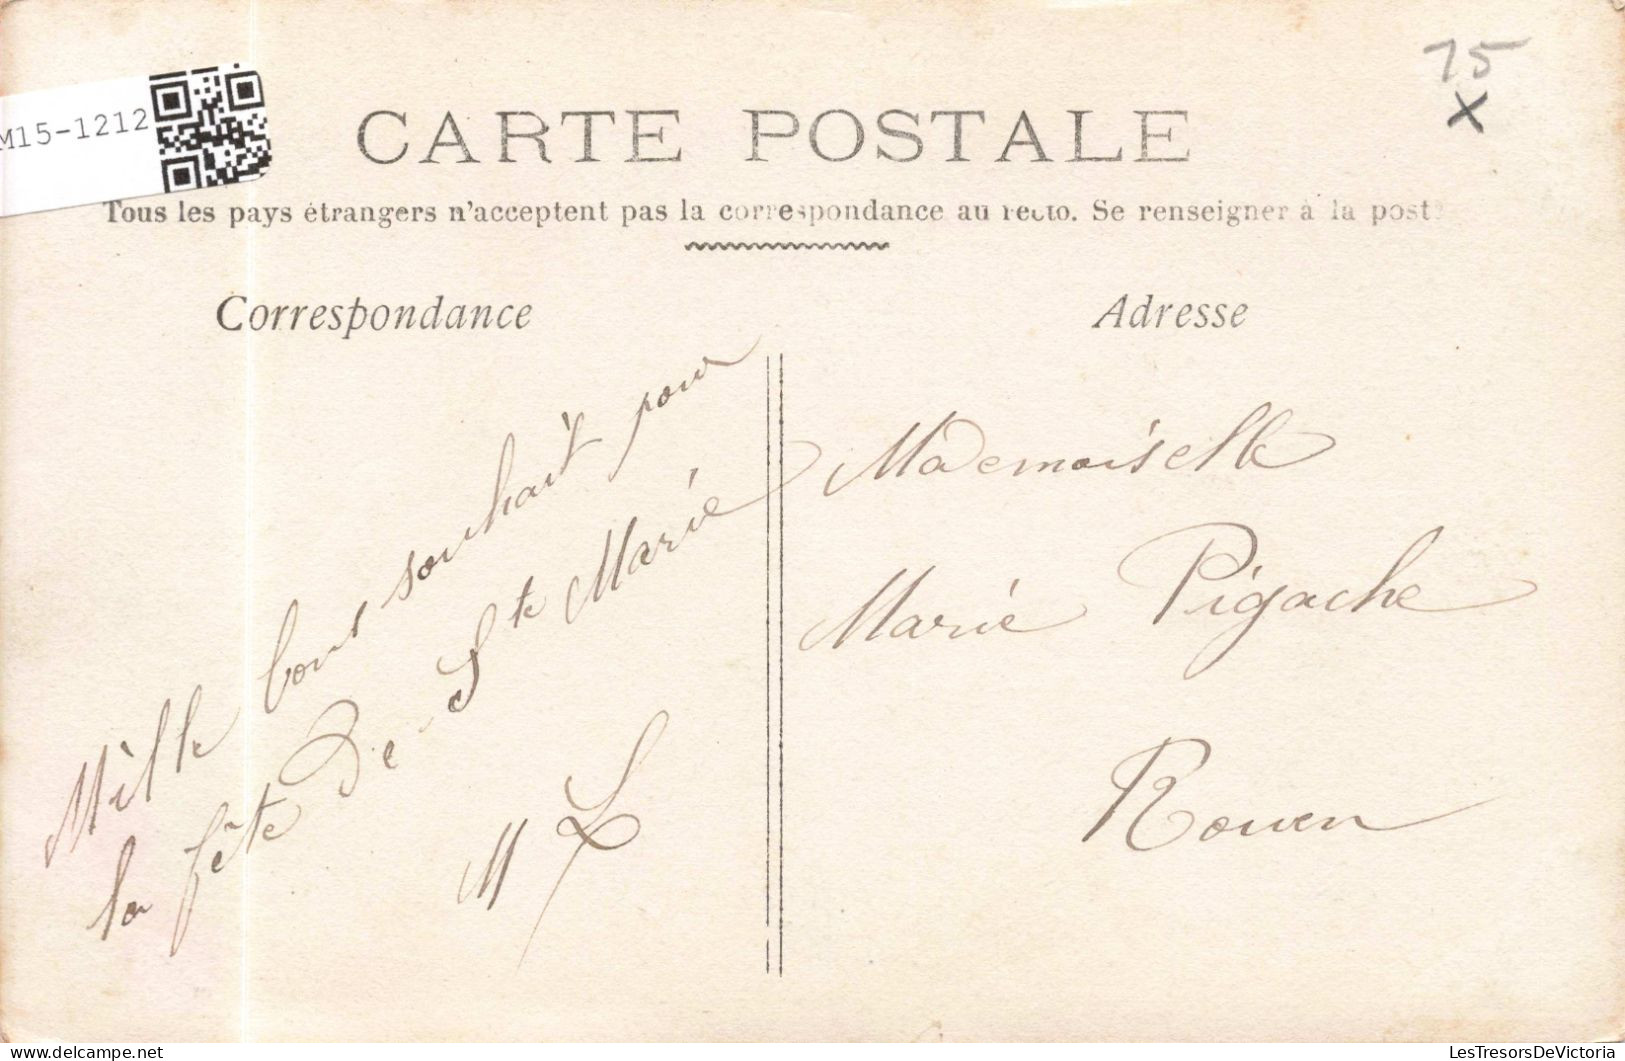 75
X
M15-1212
CARTE POSTALE
Tous les pays étrangers n'acceptent pas la correspondance au recto. Se renseigner à la poste
Correspondance
Mille bons souhait pour
la fête de Ste Marie
M L
Adresse
Mademoiselle
Marie Pigache
Rouen
LesTresorsDeVictoria